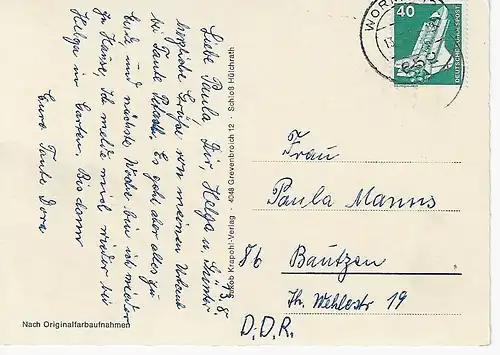 13.8.
Liebe Paula Dir, Helga u. Günter
herzliche Grüße von meinem Urlaub
bei Tante Es geht aber alles zu
Ende und nächste Woche bin ich wieder
zu Hause. Ich melde mich wieder bei
Helga im Garten. Bis dann
Eure Tante Dora
Nach Originalfarbaufnahmen
Jakob Krapohl-Verlag · 4048 Grevenbroich 12 · Schloß Hülchrath
WORM
40
DEUTSCHE BUNDESPOST
Frau
Paula Manns
86 Bautzen
Th. Wehlestr 19
D.D.R.